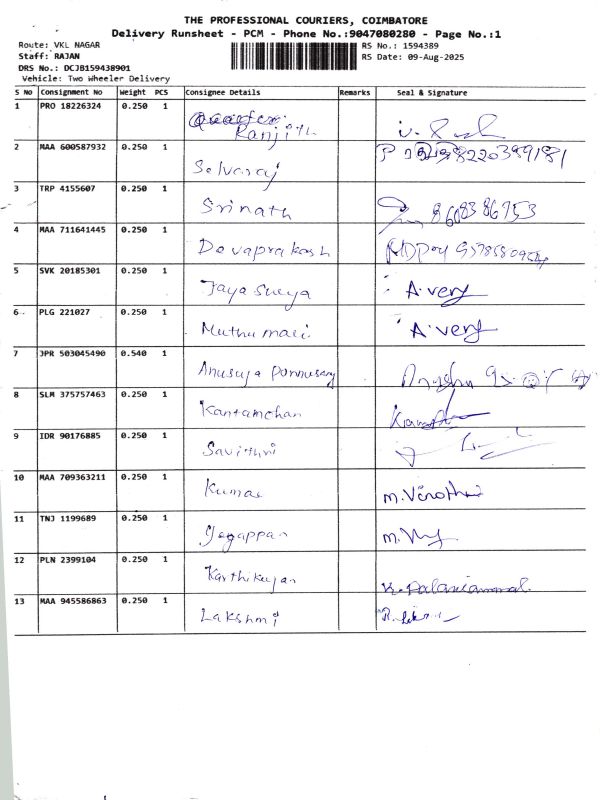 THE PROFESSIONAL COURIERS, COIMBATORE
Delivery Runsheet - PCM - Phone No.:9047080280 - Page No.:1
Route: VKL NAGAR RS No.: 1594389
Staff: RAJAN RS Date: 09-Aug-2025
DRS No.: DCJB159438901
Vehicle: Two Wheeler Delivery
S NO Consignment No Weight PCS Consignee Details Remarks Seal & Signature
1 PRO 18226324 0.250 1 Ranjith
2 MAA 600587932 0.250 1 Selvaraj
3 TRP 4155607 0.250 1 Srinath
4 MAA 711641445 0.250 1 Devaprakash
5 SVK 20185301 0.250 1 Jaya Surya A.very
6 PLG 221027 0.250 1 Muthu mari A.very
7 JPR 503045490 0.540 1 Anusuya
8 SLM 375757463 0.250 1
9 IDR 90176885 0.250 1 Savithri
10 MAA 709363211 0.250 1 Kumar
11 TNJ 1199689 0.250 1
12 PLN 2399104 0.250 1 Karthikeyan K.Palaniammal
13 MAA 945586863 0.250 1 Lakshmi